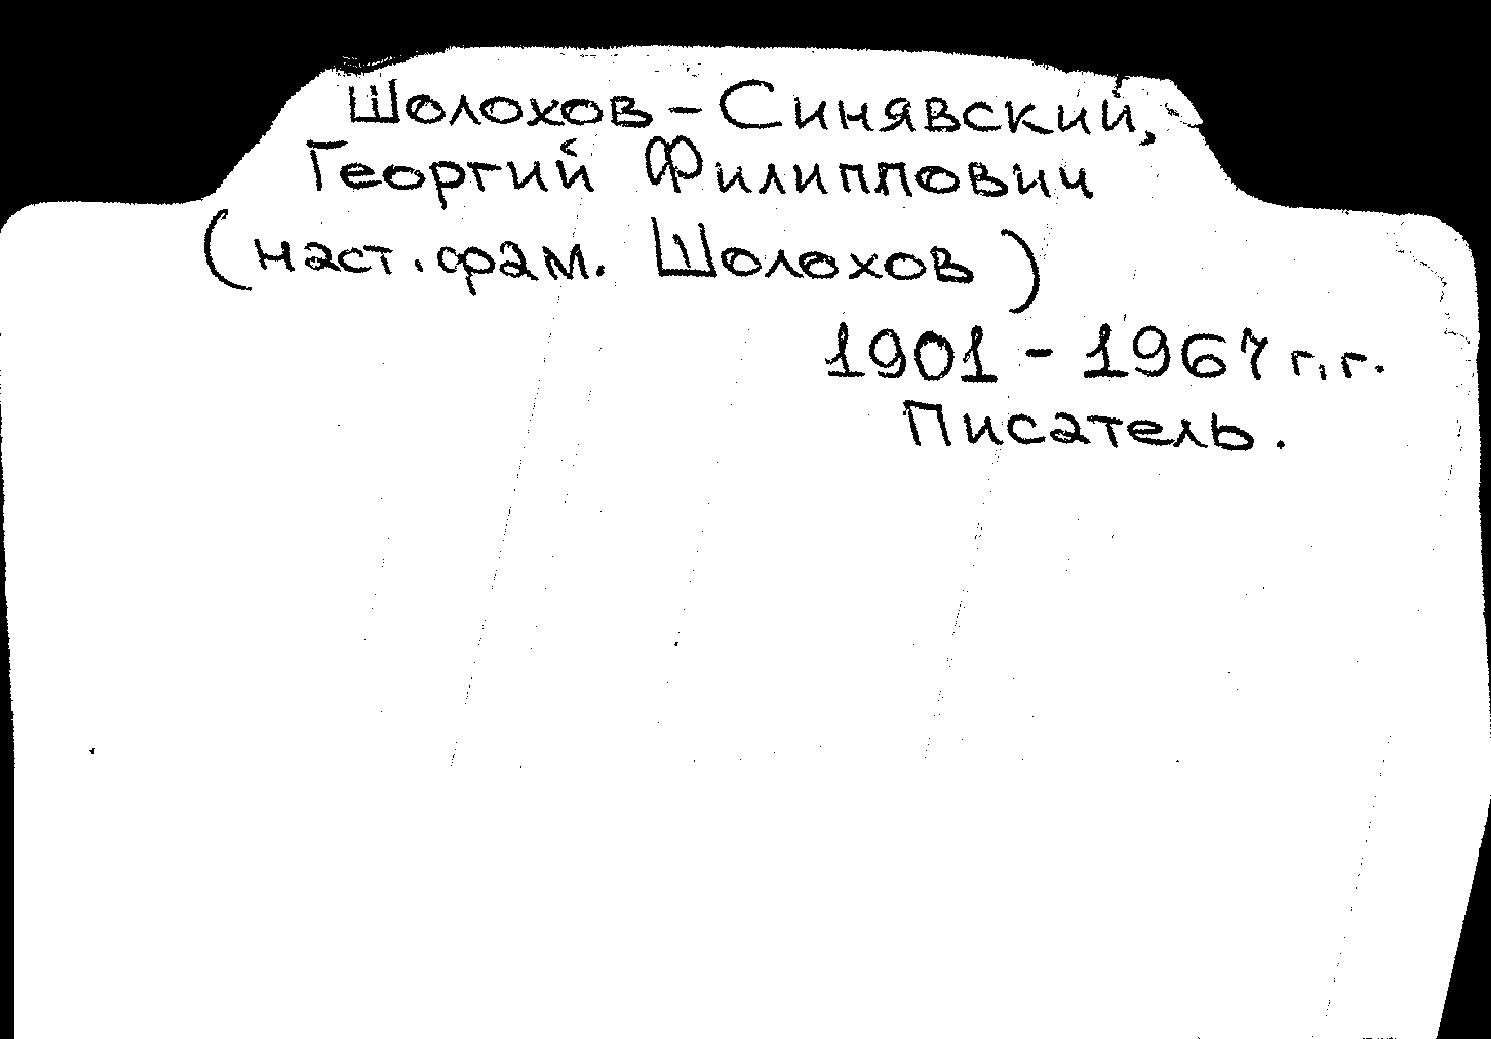 Шолохов-Синявский,
Георгий Филиппович
(наст. фам. Шолохов)
1901 - 1967 г.г.
Писатель.